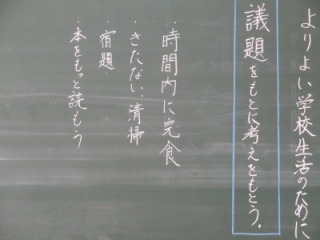 よりよい学校生活のために
議題をもとに考えをもとう。
・時間内に完食
・きたない、清掃
・宿題
・本をもっと読もう